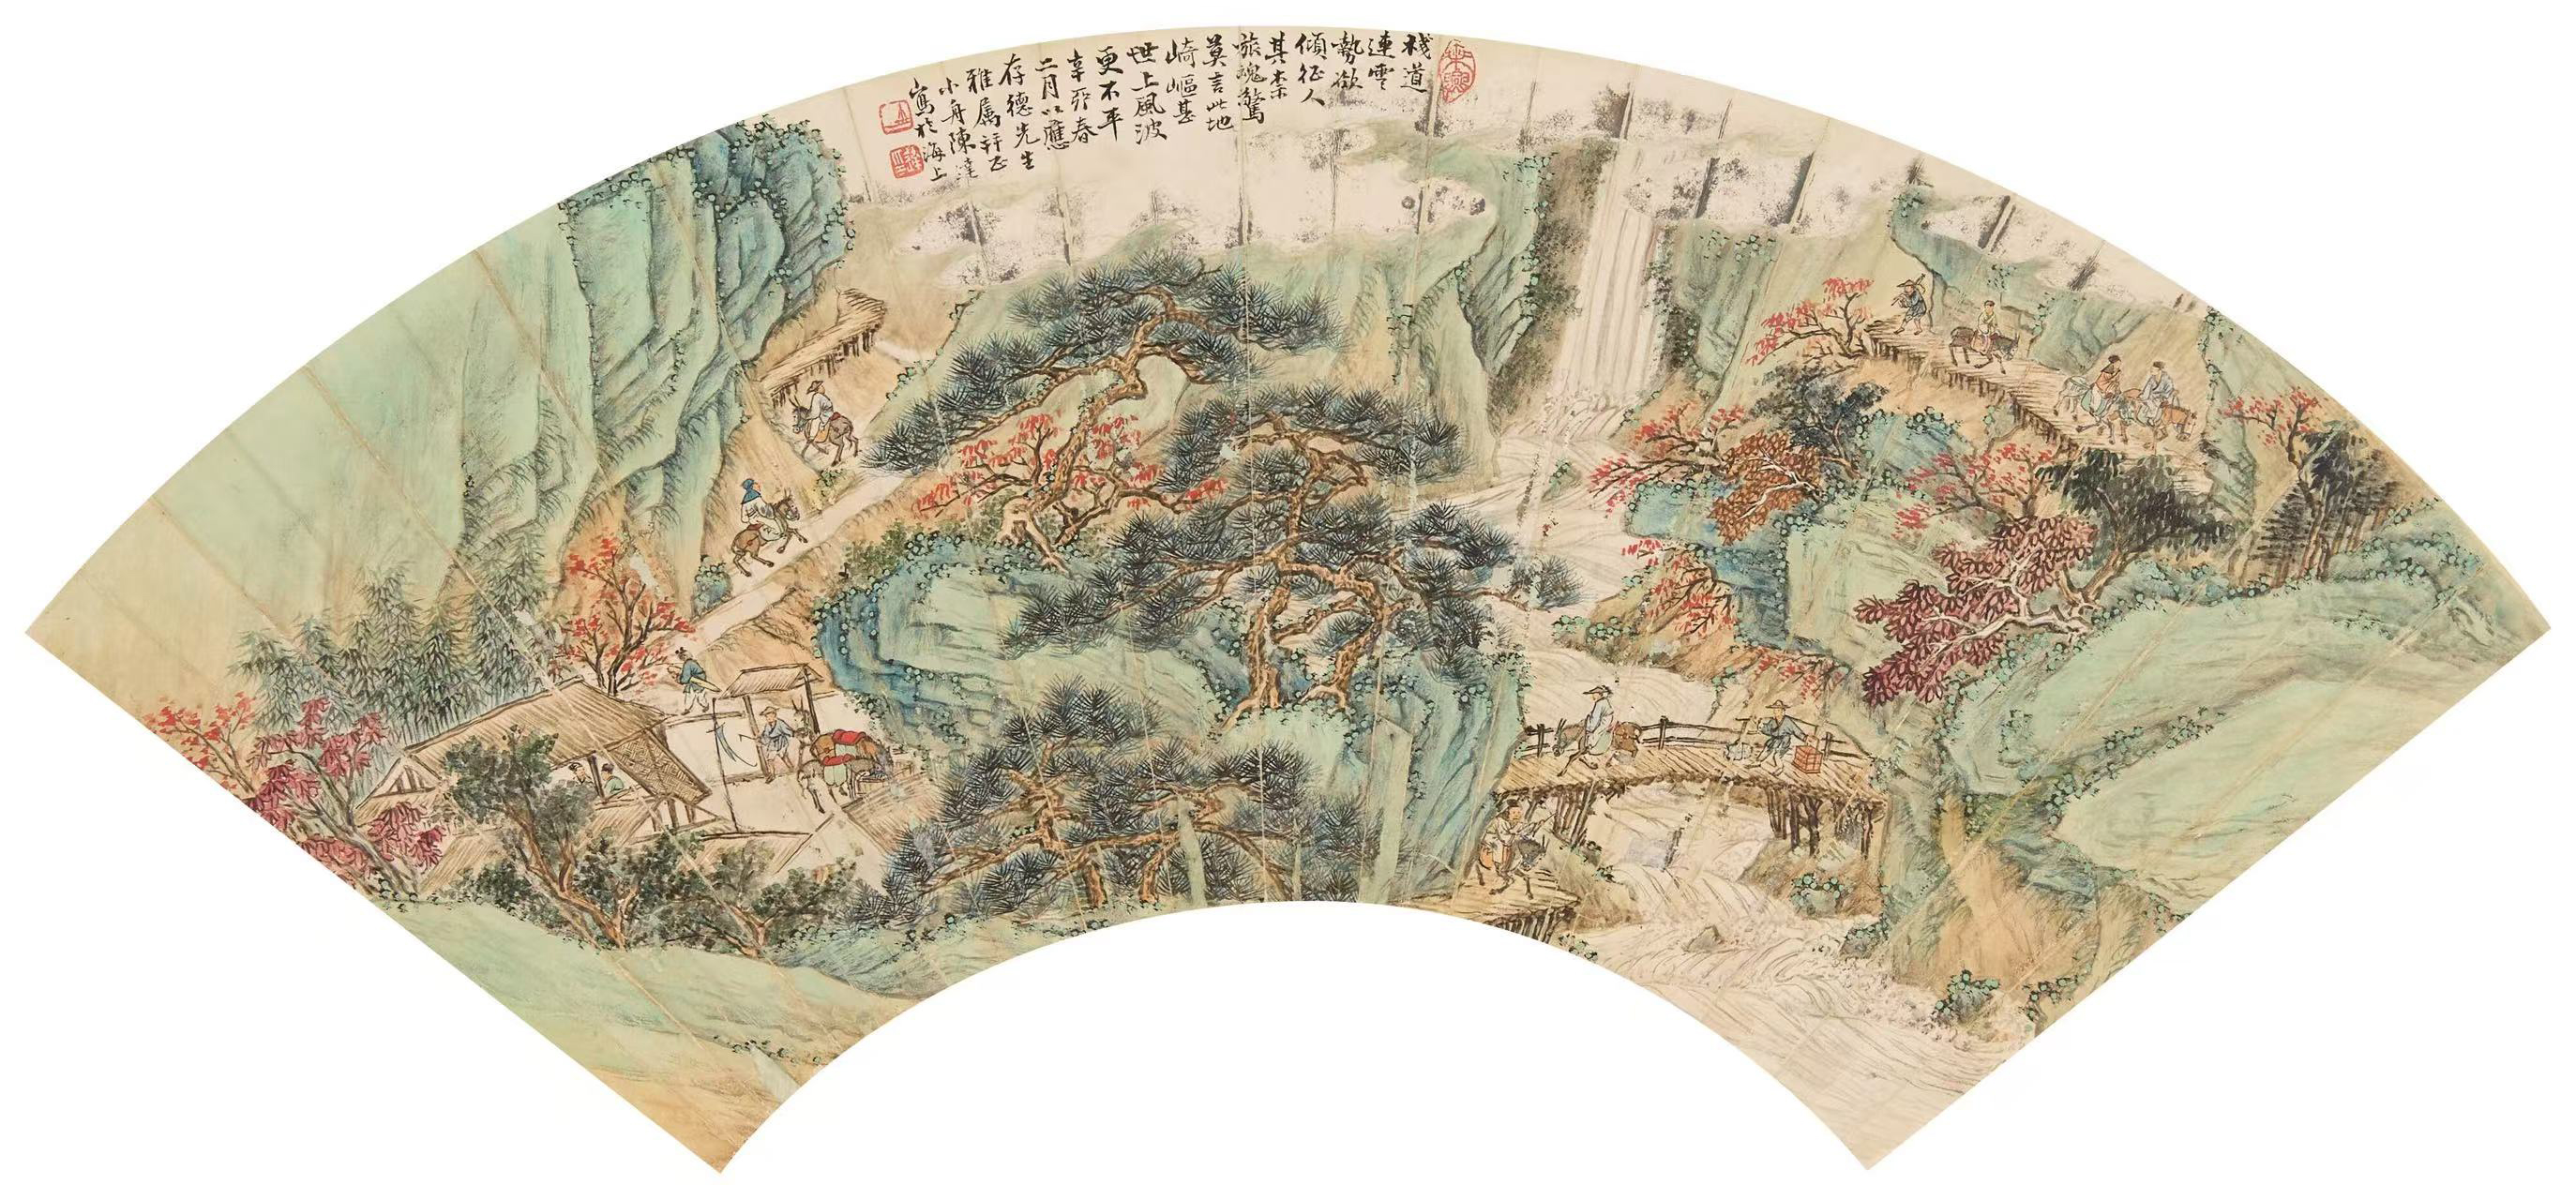 栈道
連雲
勢欲
傾征人
其奈
旅魂驚
莫言此地
崎嶇甚
世上風波
更不平
辛卯春
二月以應
存德先生
雅属粲正
小舟陳達
寫於海上